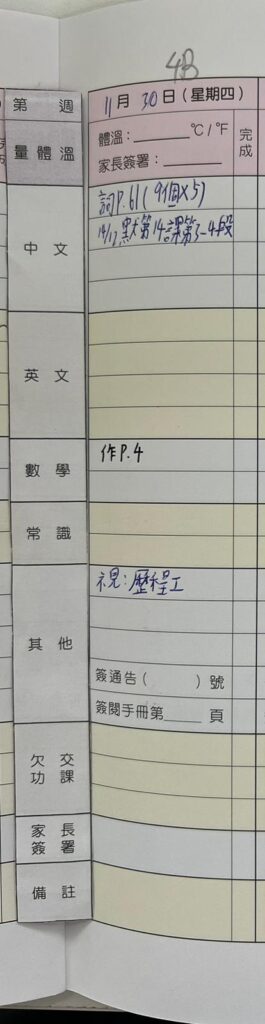 4B
第 週
11月 30日(星期四)
量體溫
體溫:______ ℃/℉
家長簽署:______
完成
中文
詞P.61(9個X5)
14/12 默第14課第3-4段
英文
數學
作P.4
常識
其他
視:歷程工
簽通告( )號
簽閱手冊第____頁
欠交
功課
家長
簽署
備註